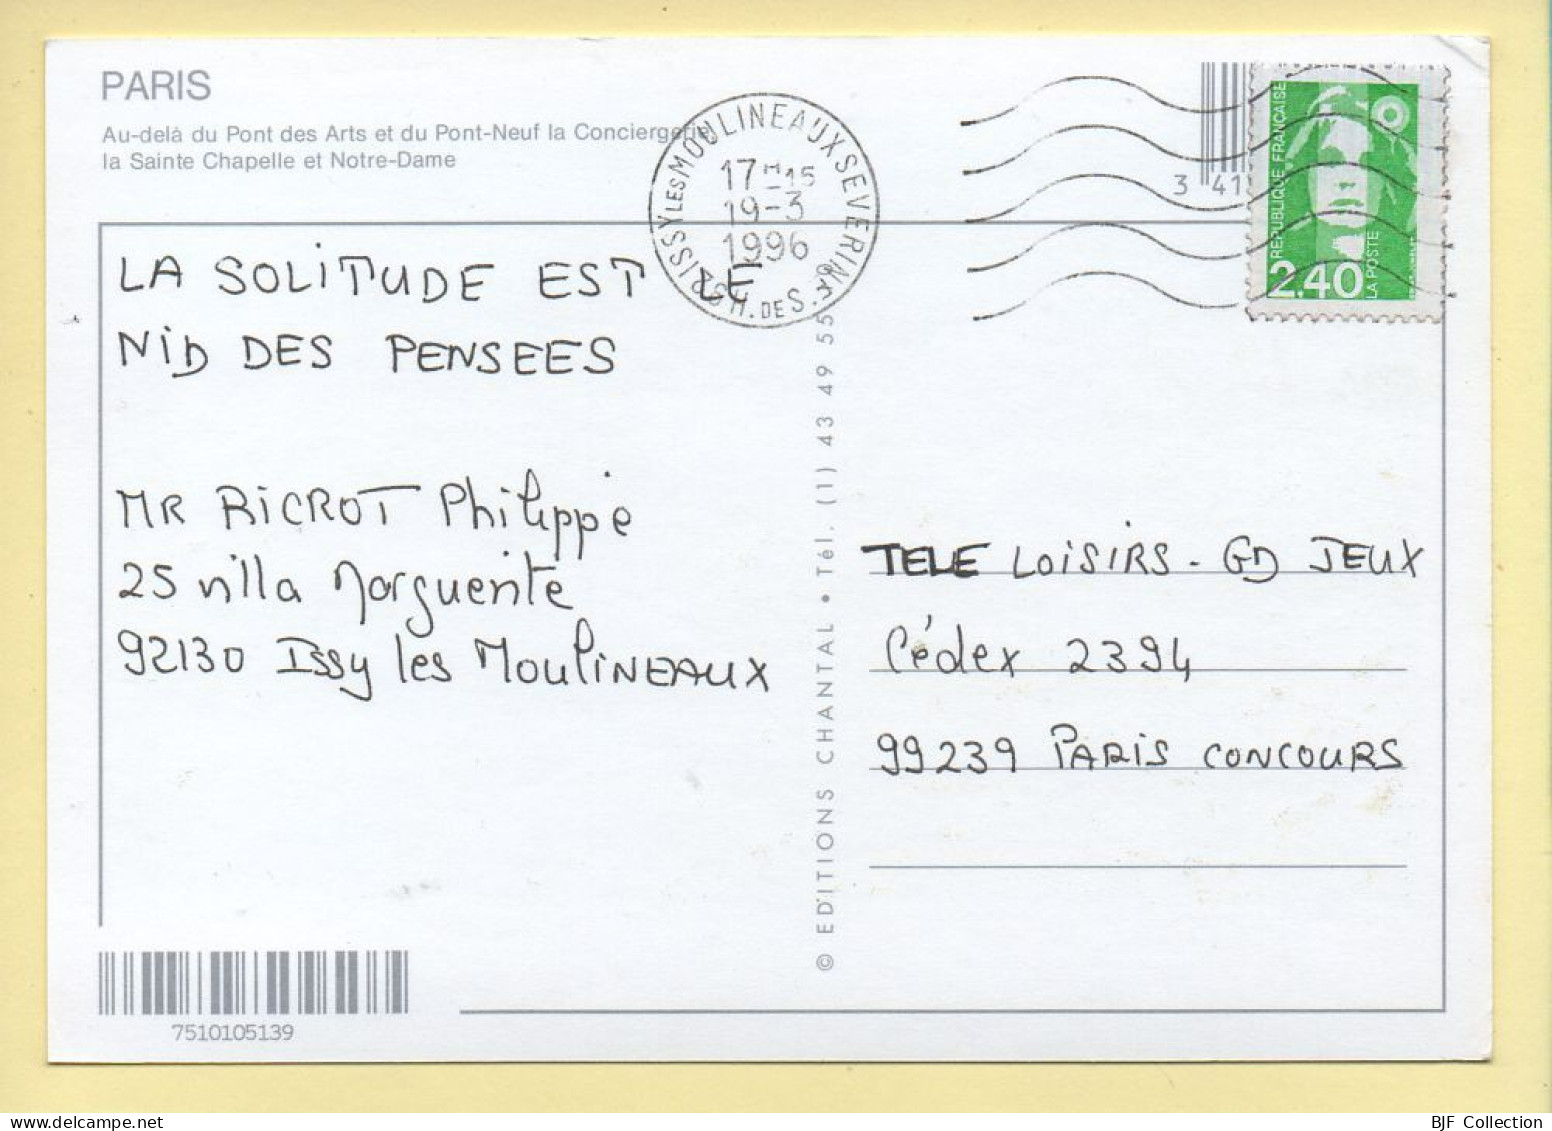 PARIS
Au-delà du Pont des Arts et du Pont-Neuf la Conciergerie
la Sainte Chapelle et Notre-Dame
ISSY LES MOULINEAUX SEVERINE
17H15
19-3
1996
92 H. DE S.
3 41
REPUBLIQUE FRANÇAISE
2,40
LA POSTE
LA SOLITUDE EST LE
NID DES PENSEES
MR RICROT Philippe
25 villa Marguerite
92130 Issy les MoulINEAUX
© EDITIONS CHANTAL • Tél. (1) 43 49 55 59
TELE LOISIRS - GD JEUX
Cédex 2394
99239 PARIS CONCOURS
7510105139
BJF Collection